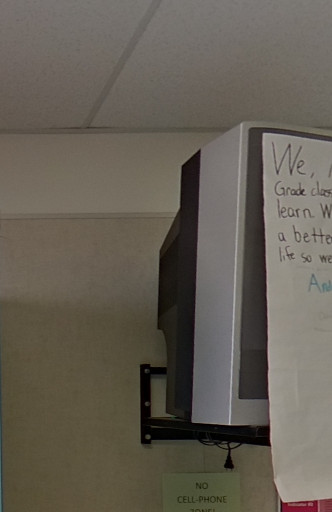 We,
Grade class
learn W
a bette
life so we
And
NO
CELL-PHONE
ZONE!